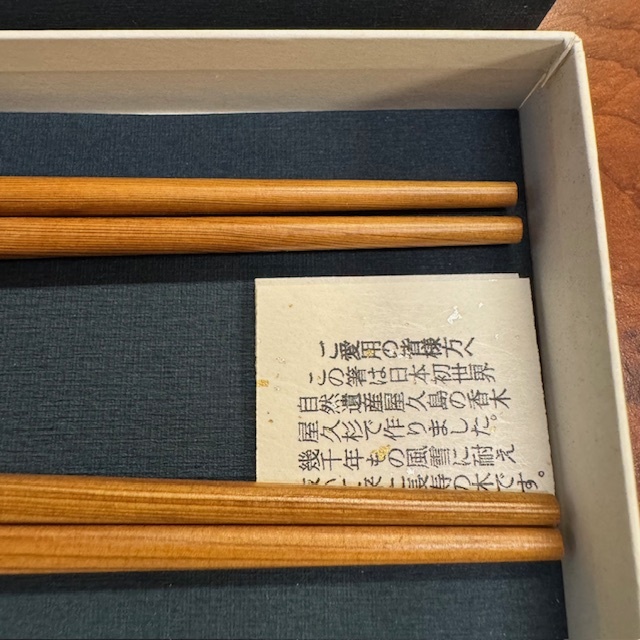 ご愛用の皆様方へ
この箸は日本初世界
自然遺産屋久島の香木
屋久杉で作りました。
幾千年もの風雪に耐え
長寿の木です。